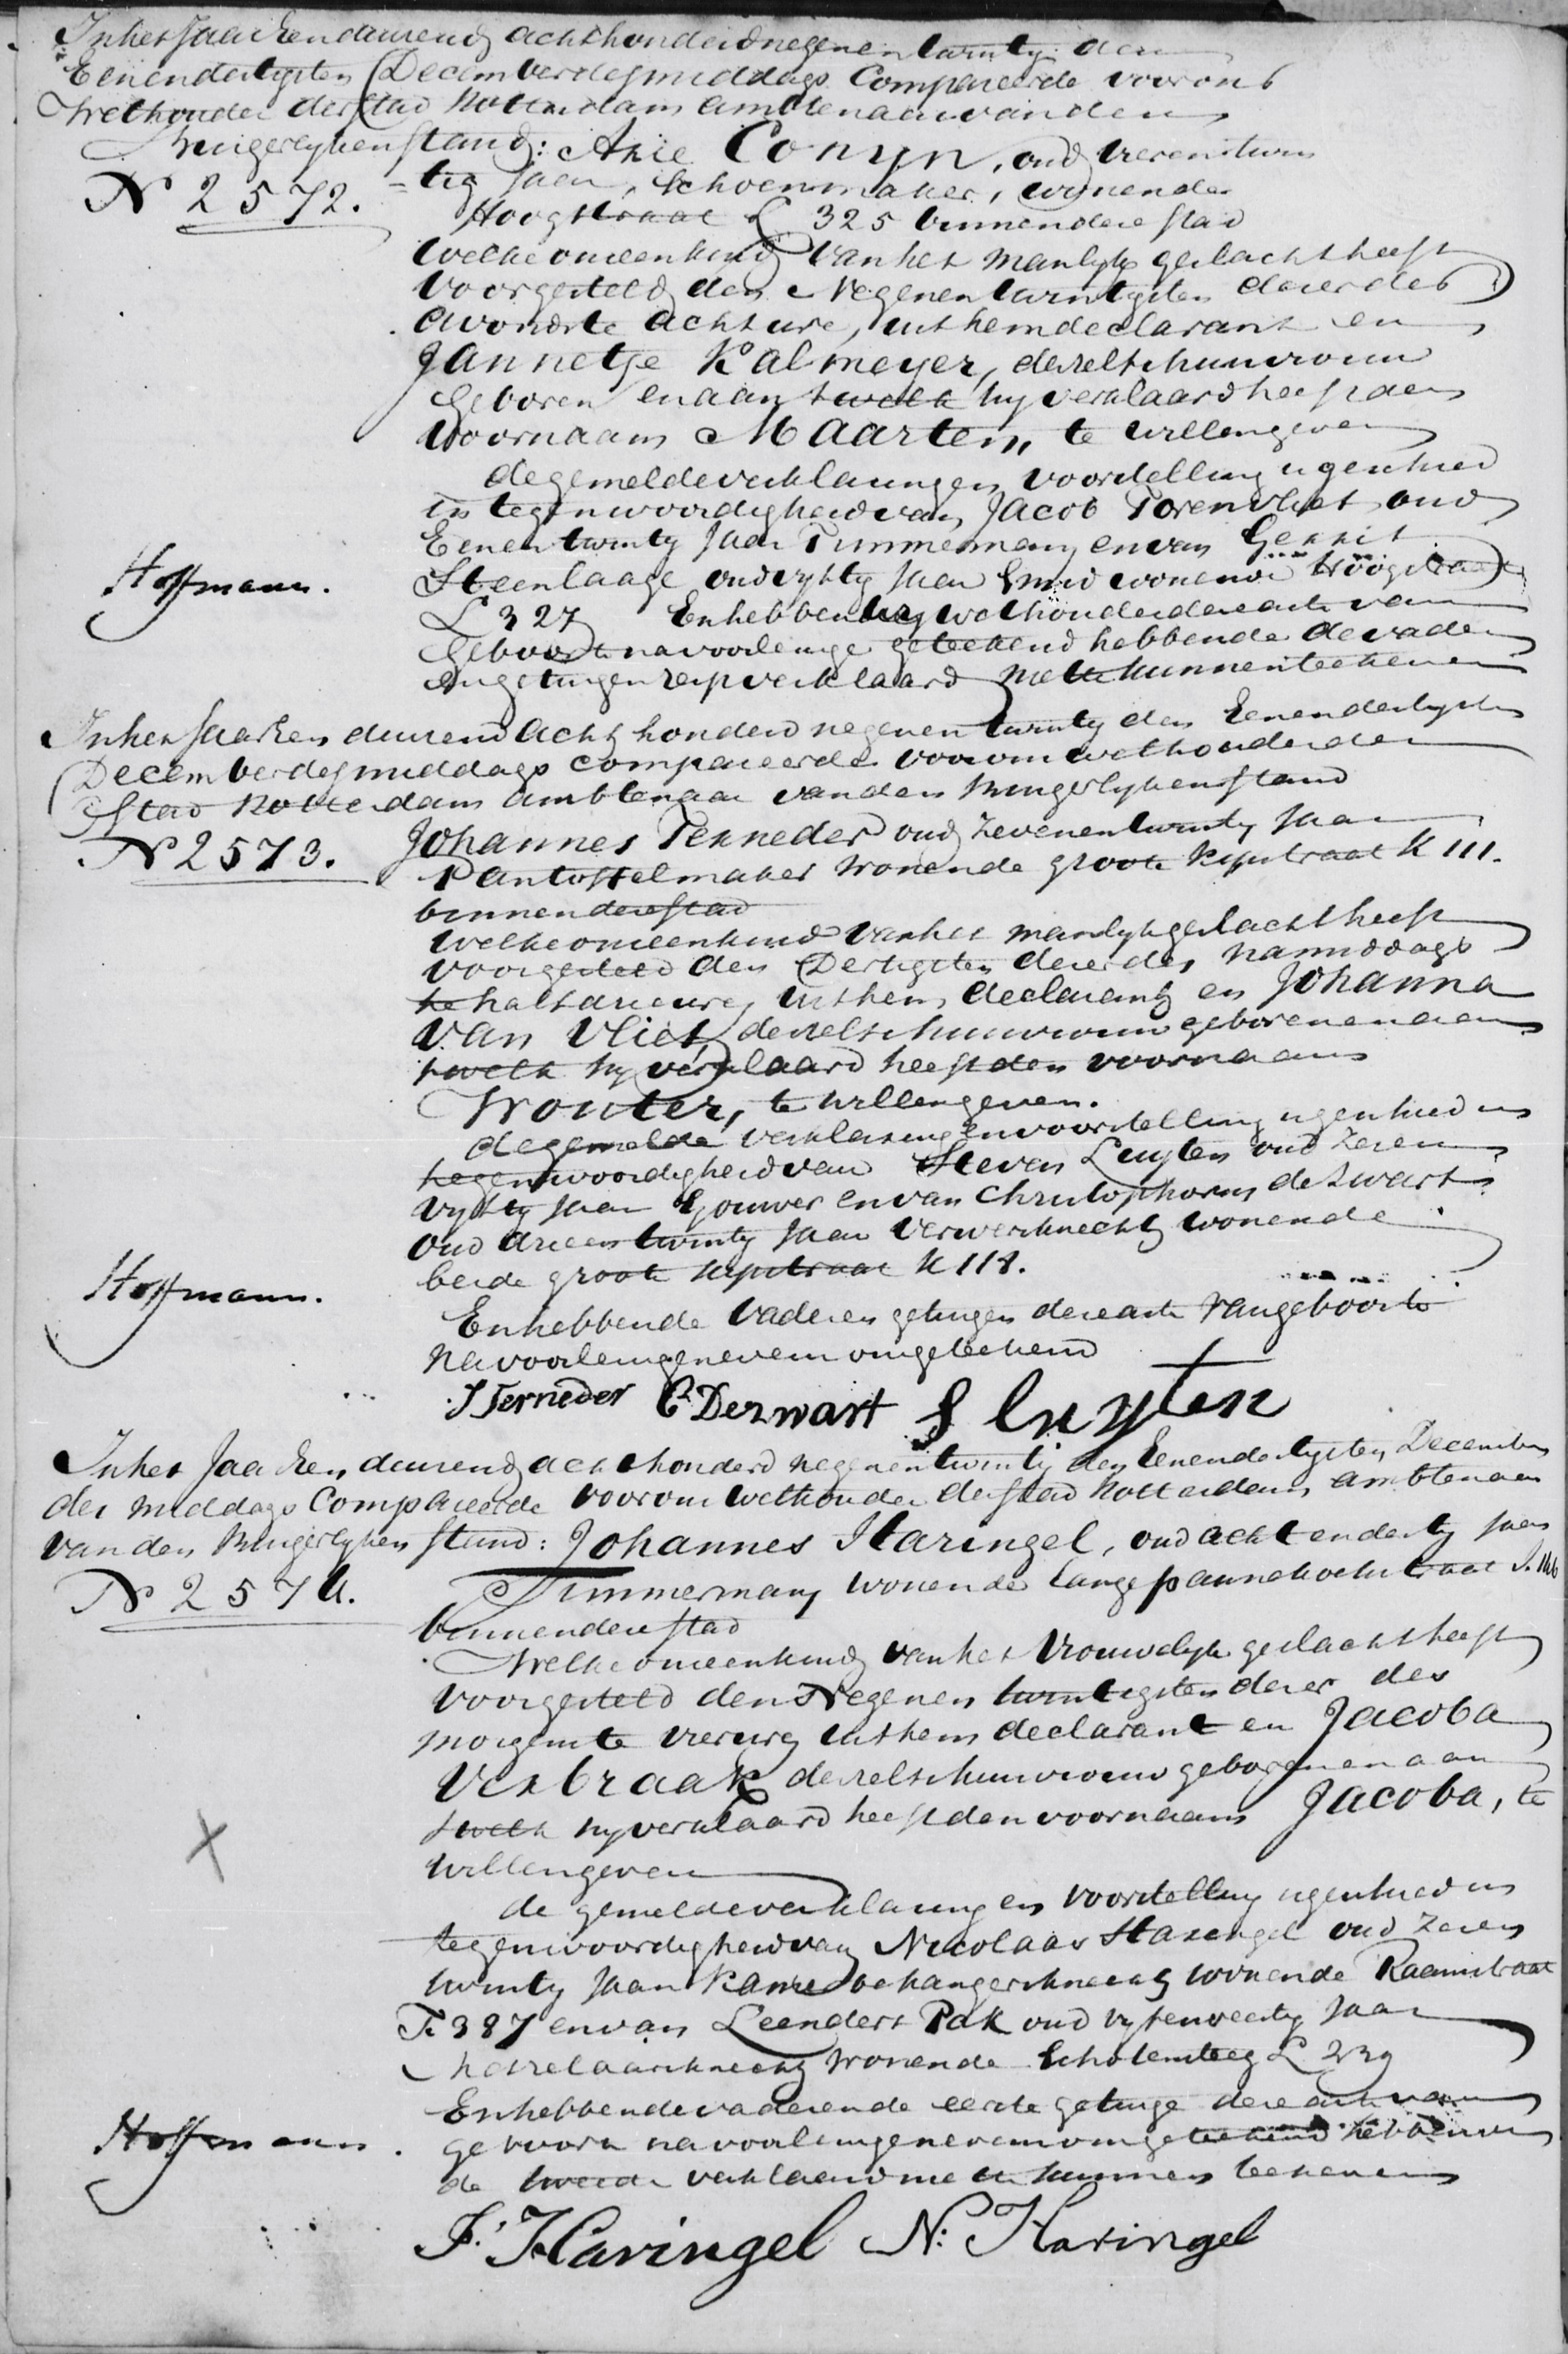 In het Jaar Een duizend achthonderd negenen twintig den
Eenendertigsten December des middags Compareerde voor ons
Wethouder der stad Rotterdam ambtenaar van den
Burgerlyken stand: Arie Conyn, oud vierentwin
N 2572. = tig Jaar, Schoenmaker, wonende
Hoogstraat L 325 binnen deze stad
welke ons een kind van het manlyk geslacht heeft
voorgesteld den Negenentwintigsten dezer des
avonds te acht ure, uit hem declarant en
Jannetje Kalmeyer, deszelfs huisvrouw
geboren en aan twelk hy verklaard heeft den
voornaam Maarten, te willen geven
de gemelde verklaringen voorstelling is geschied
in tegenwoordigheid van Jacob Torenvliet oud
Eenentwintig Jaar Timmerman en van Gerrit
Hoffmann. Steenlaage oud vyftig Jaar Smid wonende Hoogstraat
L 327 En hebben wy wethouder deze acte van
Geboorte na voorlezinge geteekend hebbende de vader
en getuigen verklaard niet te kunnen teekenen
In het Jaar Een duizend acht honderd negenen twintig den Eenendertigsten
December des middags compareerde voor ons wethouder der
Stad Rotterdam ambtenaar van den Burgerlyken stand
N 2573. Johannes Terneder oud Zevenentwintig Jaar
Pantoffelmaker wonende groote Kipstraat K 111.
binnen deze stad
welke ons een kind van het manlyk geslacht heeft
voorgesteld den Dertigsten dezer des namiddags
te half drie ure, uit hem declarant en Johanna
van Vliet, deszelfs huisvrouw geboren en aan
twelk hy verklaard heeft den voornaam
Wouter, te willen geven.
de gemelde verklaring en voorstelling is geschied in
tegenwoordigheid van Steven Luyten oud Zeven
vyftig Jaar en van Christophorus de Zwart
oud drieen twintig Jaar Verwersknecht wonende
beide groote Kipstraat K 118.
Hoffmann. En hebbende vader en getuigen deze acte van geboorte
na voorlezinge nevens ons geteekend
J Terneder C Dezwart S luyten
In het Jaar Een duizend acht honderd negenentwintig den Eenendertigsten December
des middags Compareerde voor ons wethouder der stad Rotterdam ambtenaar
van den Burgerlyken stand: Johannes Haringel, oud acht en dertig Jaar
N 2574. Timmerman wonende Lange pannekoekstraat
binnen deze stad
Welke ons een kind van het Vrouwelyk geslacht heeft
voorgesteld den Negenen twintigsten dezer des
morgens te vier ure uit hem declarant en Jacoba
Verbraak deszelfs huisvrouw geboren en aan
twelk hy verklaard heeft den voornaam Jacoba, te
willen geven
de gemelde verklaring en voorstelling is geschied in
tegenwoordigheid van Nicolaas Haringel oud Zeven
twintig Jaar Kamerbehangersknecht wonende Raamstraat
T. 387 en van Leendert Pak oud vyfenveertig Jaar
wonende L 239
En hebbende vader en de eerste getuige deze acte van
Hoffmann. geboorte na voorlezinge nevens ons geteekend hebbende
de tweede verklaard niet te kunnen teekenen
J. Haringel N: Haringel